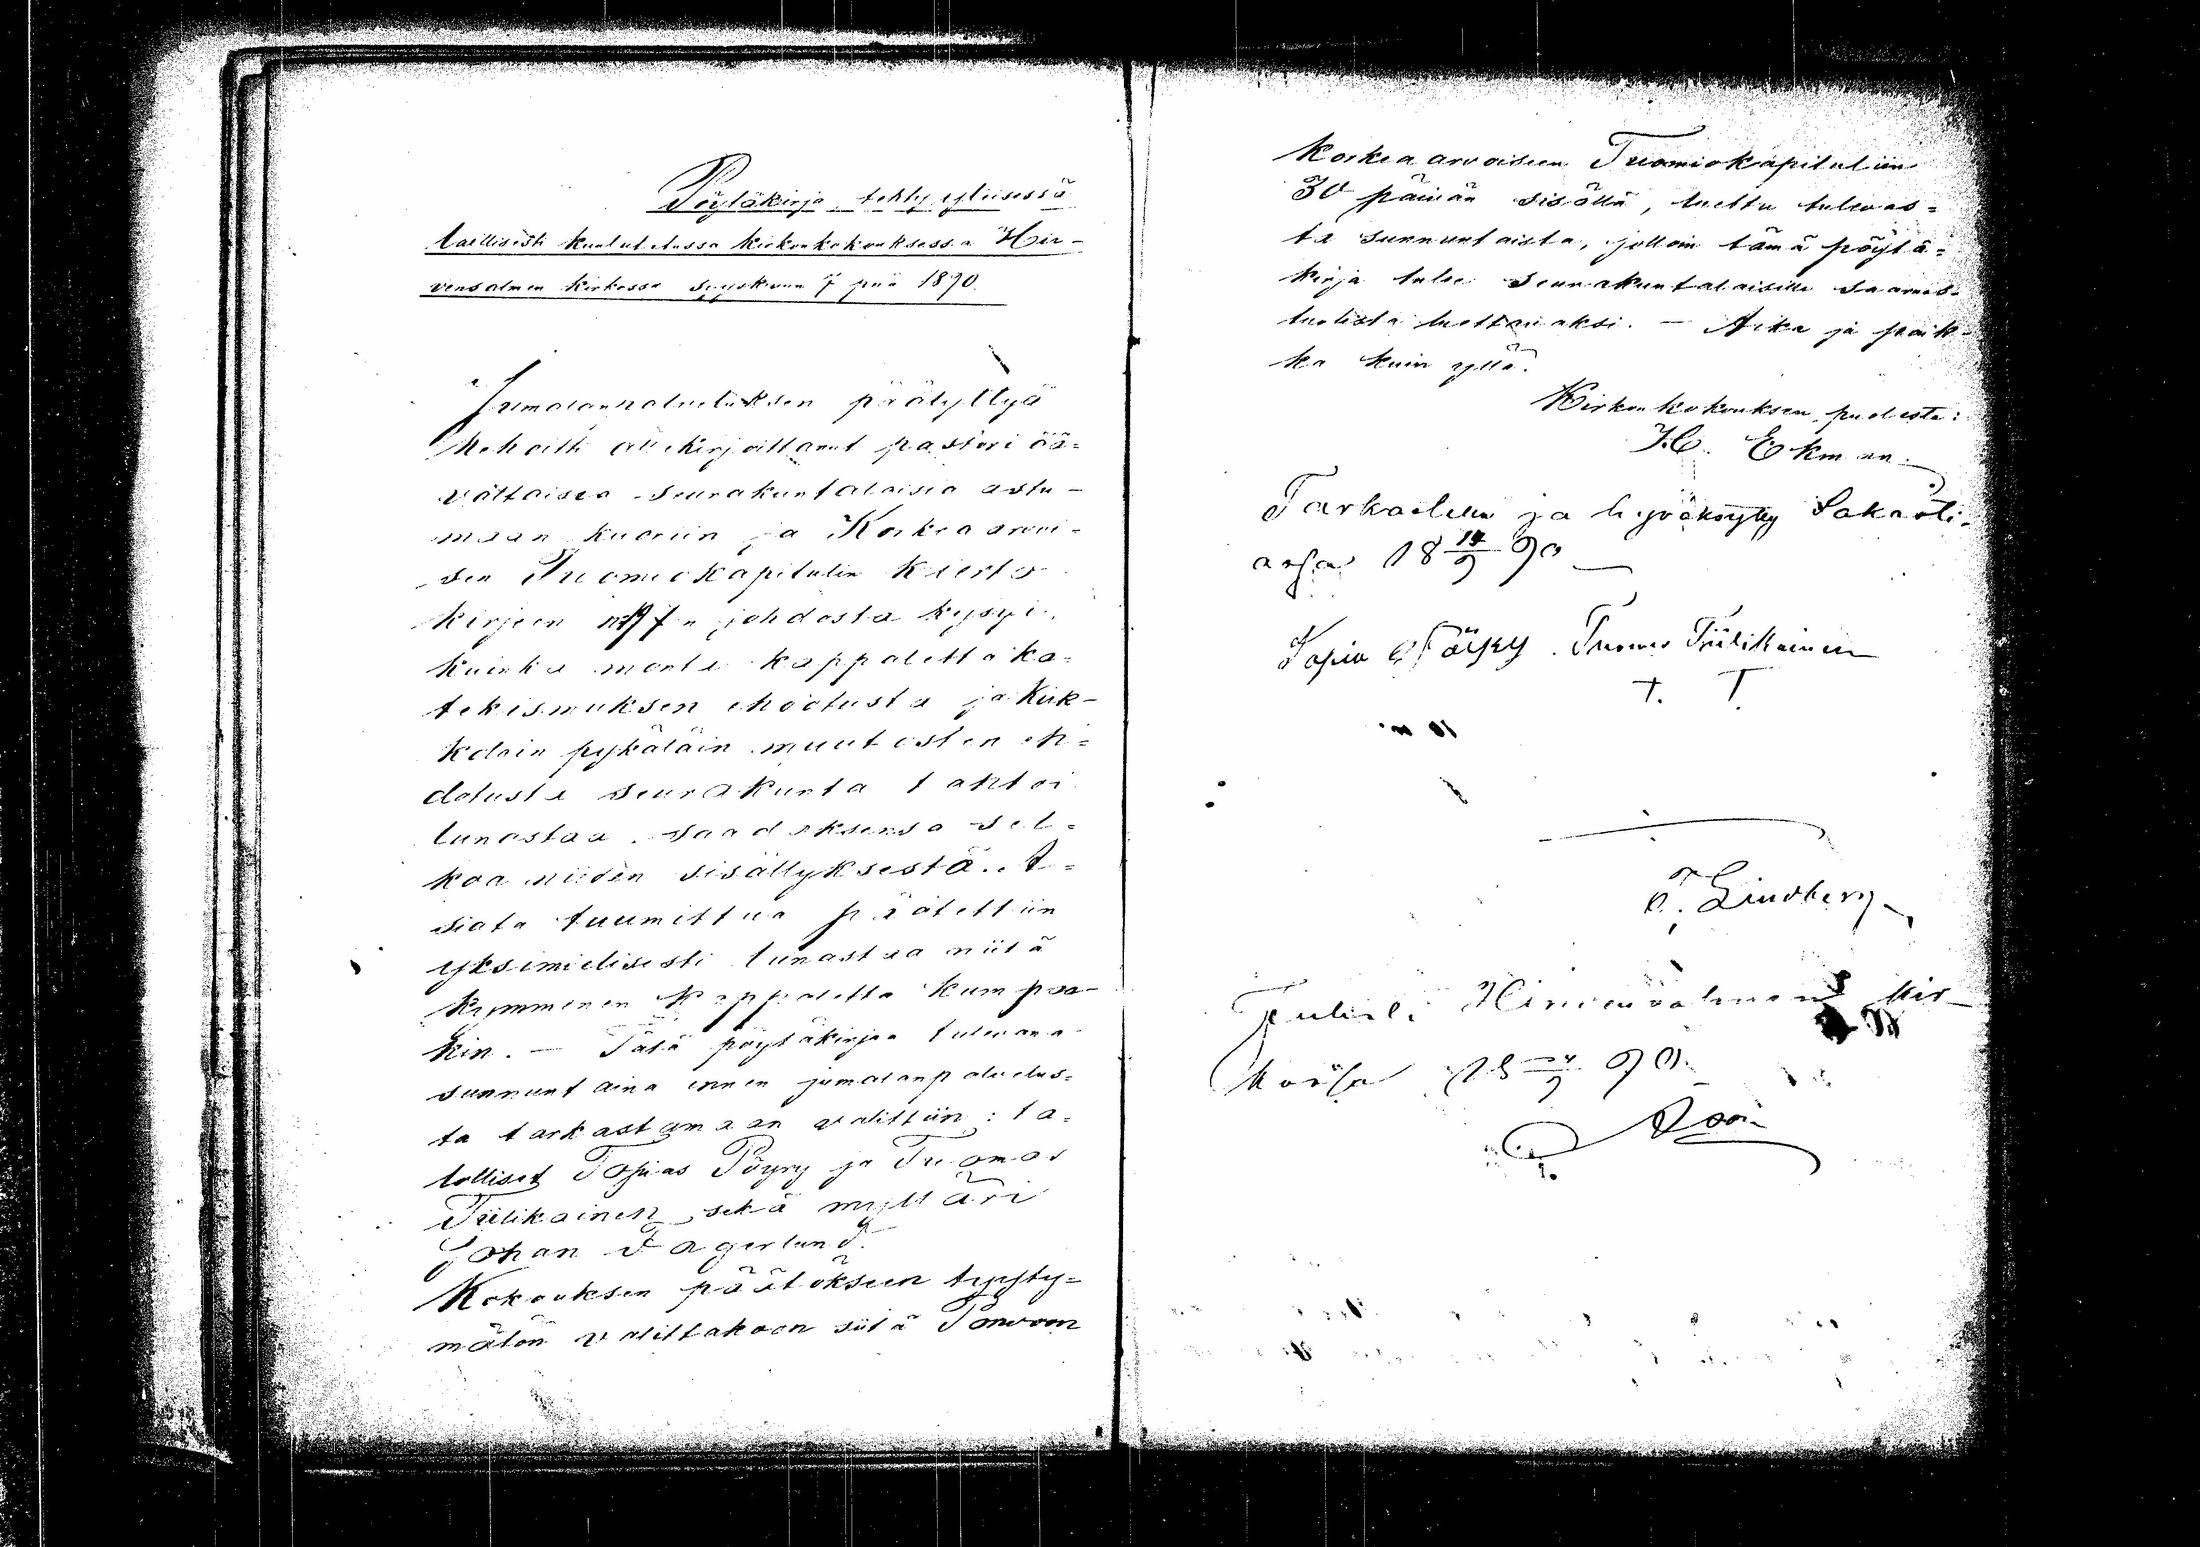 Pöytäkirja, tehty yleisessä
laillisesti kuulutetussa kirkonkokouksessa Hir-
vensalmen kirkossa syyskuun 7 pnä 1890.
Jumalanpalveluksen päätyttyä
kehoitti allekirjoittanut pastori ää-
vältaisia seurakuntalaisia astu-
maan kuoriin ja Korkea arvoi-
sen Tuomiokapitulin kierto
kirjeen johdosta kysyi,
kuinka monta kappaletta ka-
tekismuksen ehdotusta ja Kirk-
kolain pykäläin muutosten eh-
dotusta seurakunta tahtoi
lunastaa saadaksensa sel-
koa niiden sisällyksestä. A-
siata tuumittua päätettiin
yksimielisesti lunastaa niitä
kymmenen kappaletta kumpaa-
kin. — Tätä pöytäkirjaa tulevana
sunnuntaina ennen jumalanpalvelus-
ta tarkastamaan valittiin: ta-
lolliset Topias Pöyry ja Tuomas
Tiilikainen sekä mylläri
Johan Fagerlund.
Kokouksen päätökseen tyyty-
mätön valittakoon siitä Porvoon
Korkea arvoiseen Tuomiokapituliin
30 päivän sisällä, luettu tulevas-
ta sunnuntaista, jolloin tämä pöytä-
kirja tulee seurakuntalaisille saarnas-
tuolista luettavaksi. — Aika ja paik-
ka kuin yllä.
Kirkonkokouksen puolesta:
K. Ekman.
Tarkastettu ja hyväksytty Sakasti-
assa 18 14/9 90
Topia Pöyry. Tuomas Tiilikainen
T. T.
Lindberg
Julist. Hirvensalmen kir-
kossa 18 /9 90.